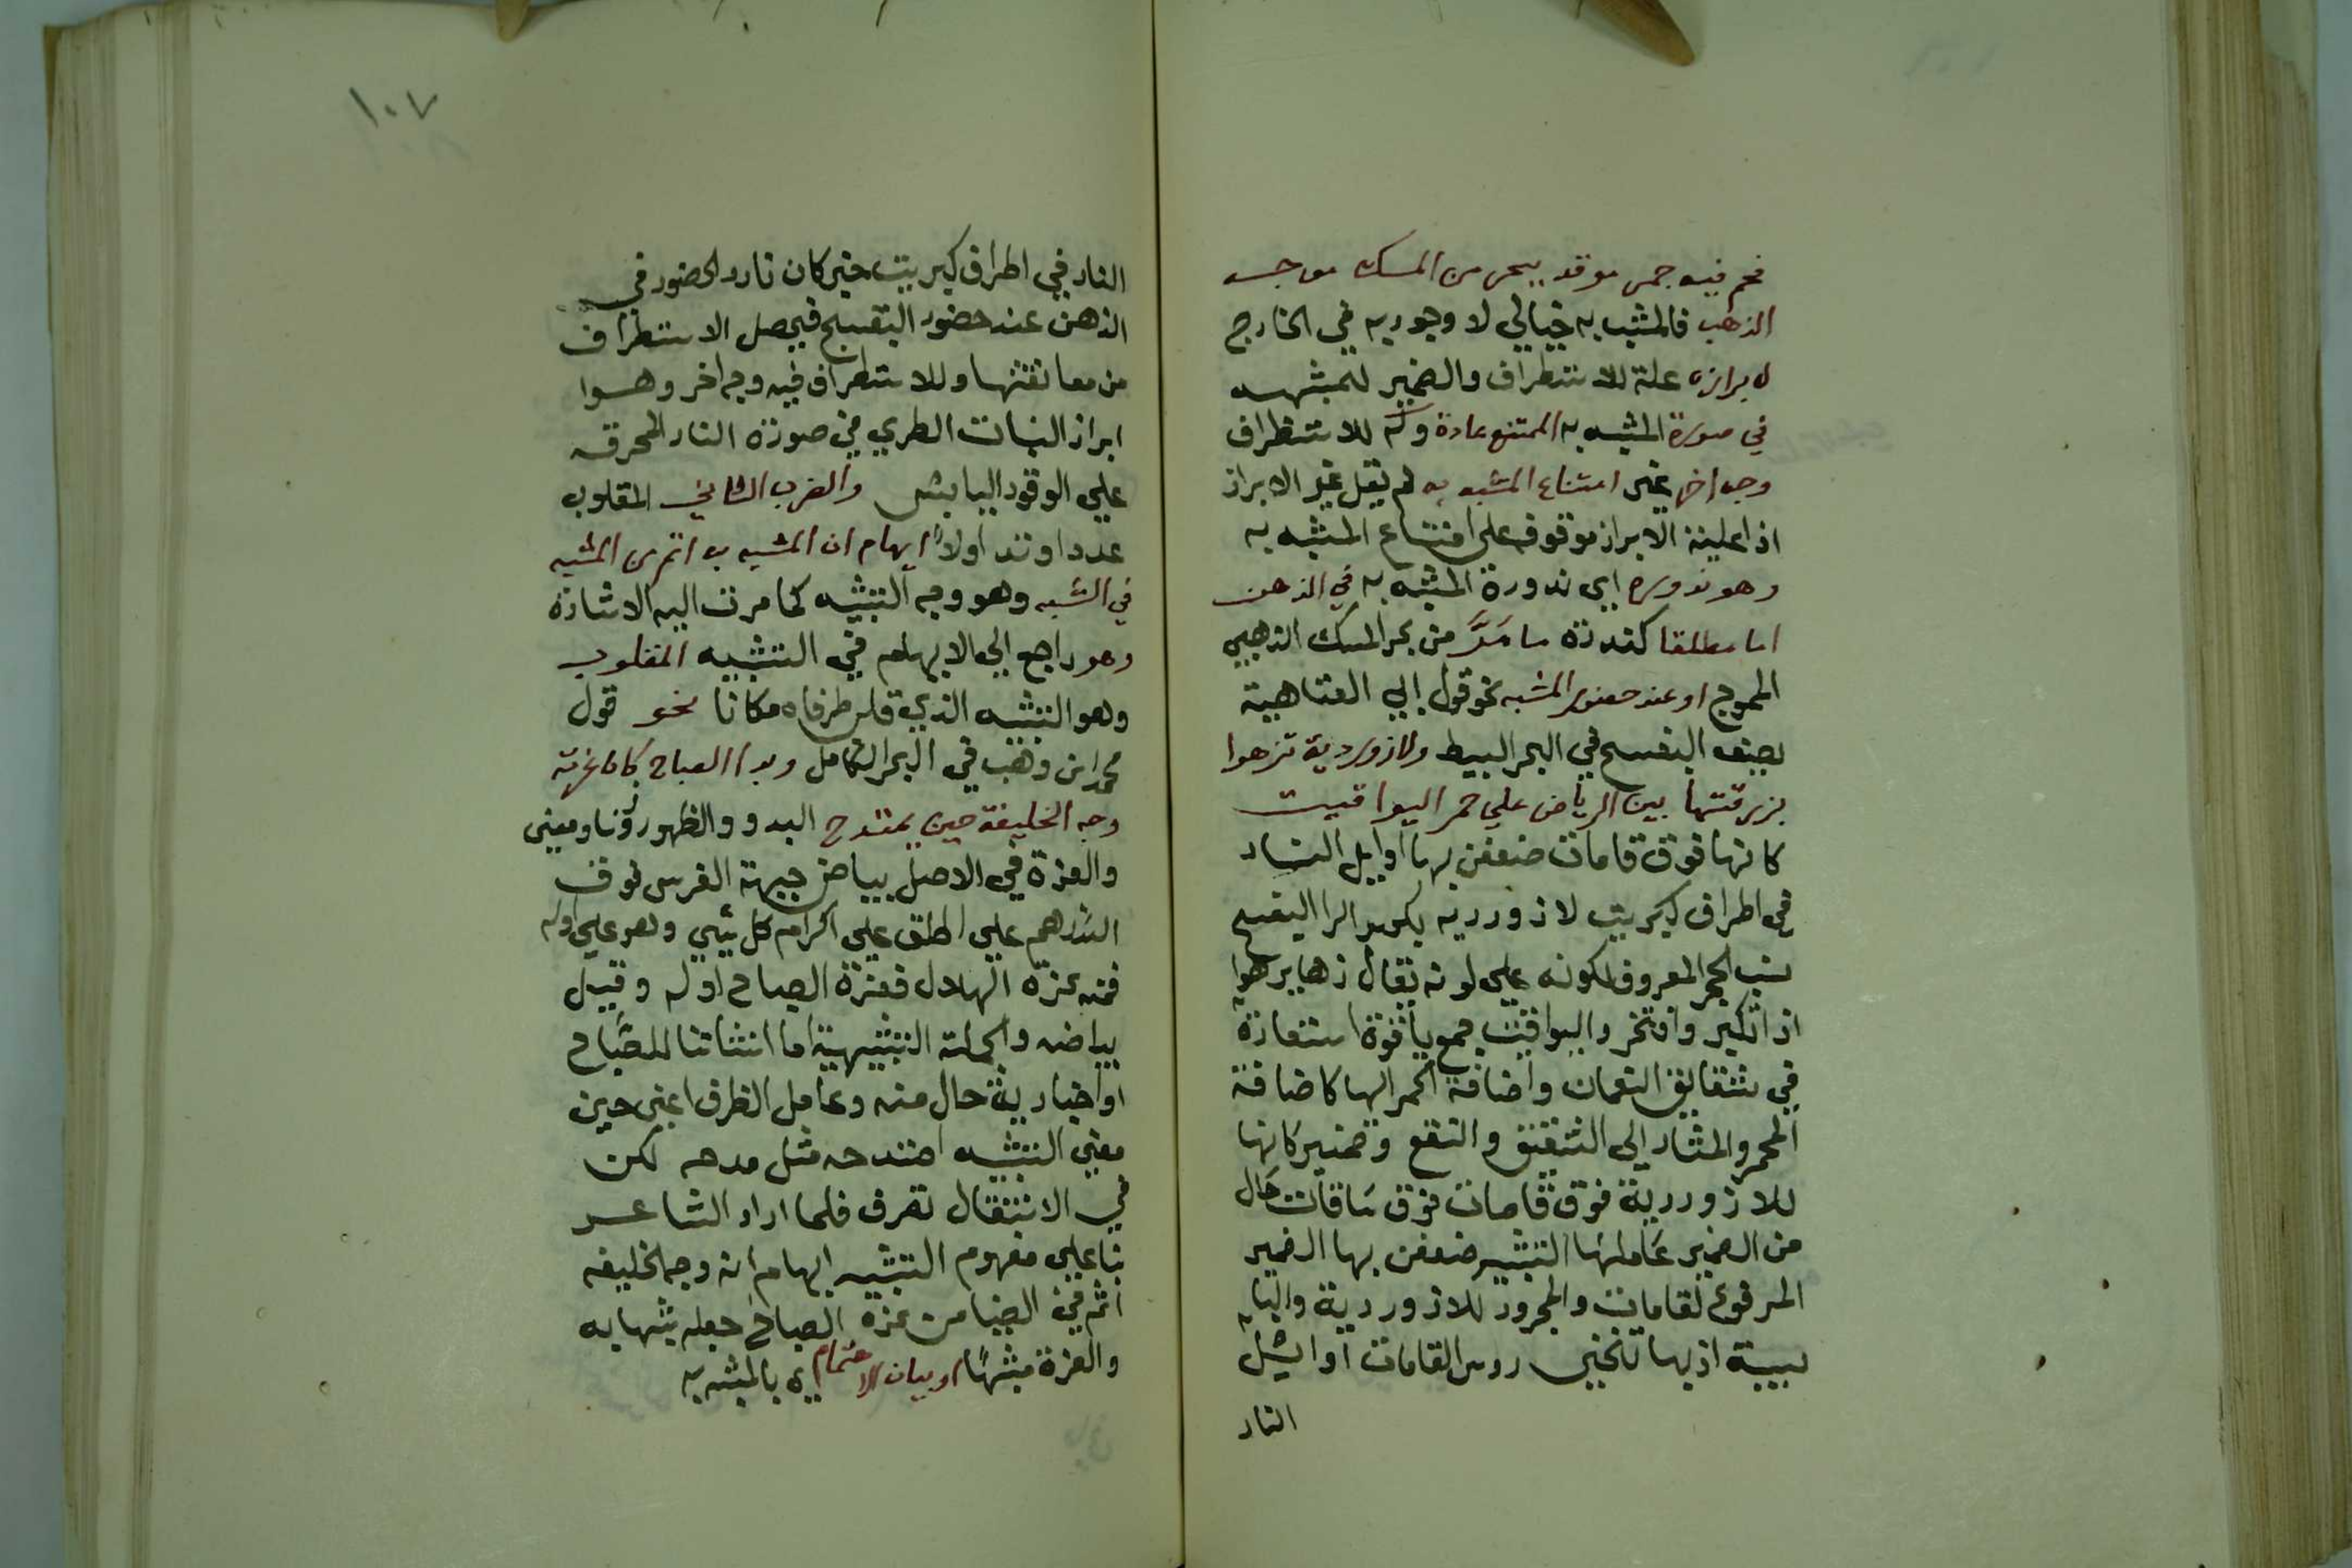 فحم فيه جمر موقد ببحر من المسك موجه
الذهب فالمشبه به خيالي لا وجود به في الخارج
لابرازه علة للاستطراف والضمير للمشبه
في صورة الممتنع عادة وله للاستطراف
وجه اخر غير امتناع المشبه به لم يقل غير الابراز
اذ اعلية الابراز موقوف على امتناع المشبه به
وهو ندوره اي ندورة المشبه به في الذهن
اما مطلقا كندرة ما مر من بحر المسك الذهبي
الموج او عند حضور المشبه نحو قول ابي العتاهية
يصف البنفسج في البحر البسيط ولازوردية تزهوا
بزرقتها بين الرياض علي حمر اليواقيت
كانها فوق قامات ضعفن بها اوايل النار
في اطراف كبريت لازوردية بكسر الزا البنفسج
نسب الحجر المعروف لكونه علي لونه يقال زها يزهوا
اذا تكبر وافتخر واليواقيت جمع ياقوة استعارة
في شقايق النعمان واضافة الحمر اليها كاضافة
المحمر والمشار الي الشقيق وضمير كانها
للازوردية فوق قامات فوق ساقات حال
من الضمير عاملها التشبيه ضعفن بها الضمير
المرفوع لقامات والمجرور للازوردية والبا
سببية اذ بها تنحني روس القامات اوايل
النار
١٠٧
النار في اطراف كبريت خبر كان نادر الحضور في
الذهن عند حضور البنفسج فيحصل الاستطراف
من معانقتها وللاستطراف فيه وجه اخر وهوا
ابراز النبات الطري في صورة النار المحرقه
علي الوقود اليابس والضرب الثاني المقلوب
عدد اولا ايهام ان المشبه به اتم من المشبه
في الشبه وهو وجه التشبيه كما مرت اليه الاشارة
وهو راجع الي الايهام في التشبيه المقلوب
وهو التشبيه الذي قلب طرفاه مكانا نحو قول
محمد ابن وهب في البحر الكامل وبدا الصباح كان غرته
وجه الخليفة حين يمتدح البدو والظهور وزنا ومعنى
والغرة في الاصل بياض جبهة الفرس فوق
الدرهم علي اطلق علي اكرام كل شي وهو علي اوله
فمنه غرة الهلال فغرة الصباح اوله وقيل
بياضه والجملة التشبيهية اما للصباح
او اخبارية حال منه وعامل الظرف اعنى حين
معني التشبيه امتدحه مثل مدحه لكن
في الانتقال تصرف فلما اراد الشاعر
بنا علي مفهوم التشبيه ايهام ان وجه الخليفه
اتم في الضيا من غرة الصباح جعله مشبها به
والغرة مشبها او بيان الاهتمام به بالمشبه به